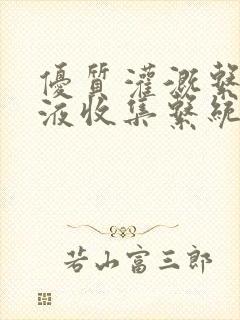 優質灌溉繫
液收集繫統
若山富三郎